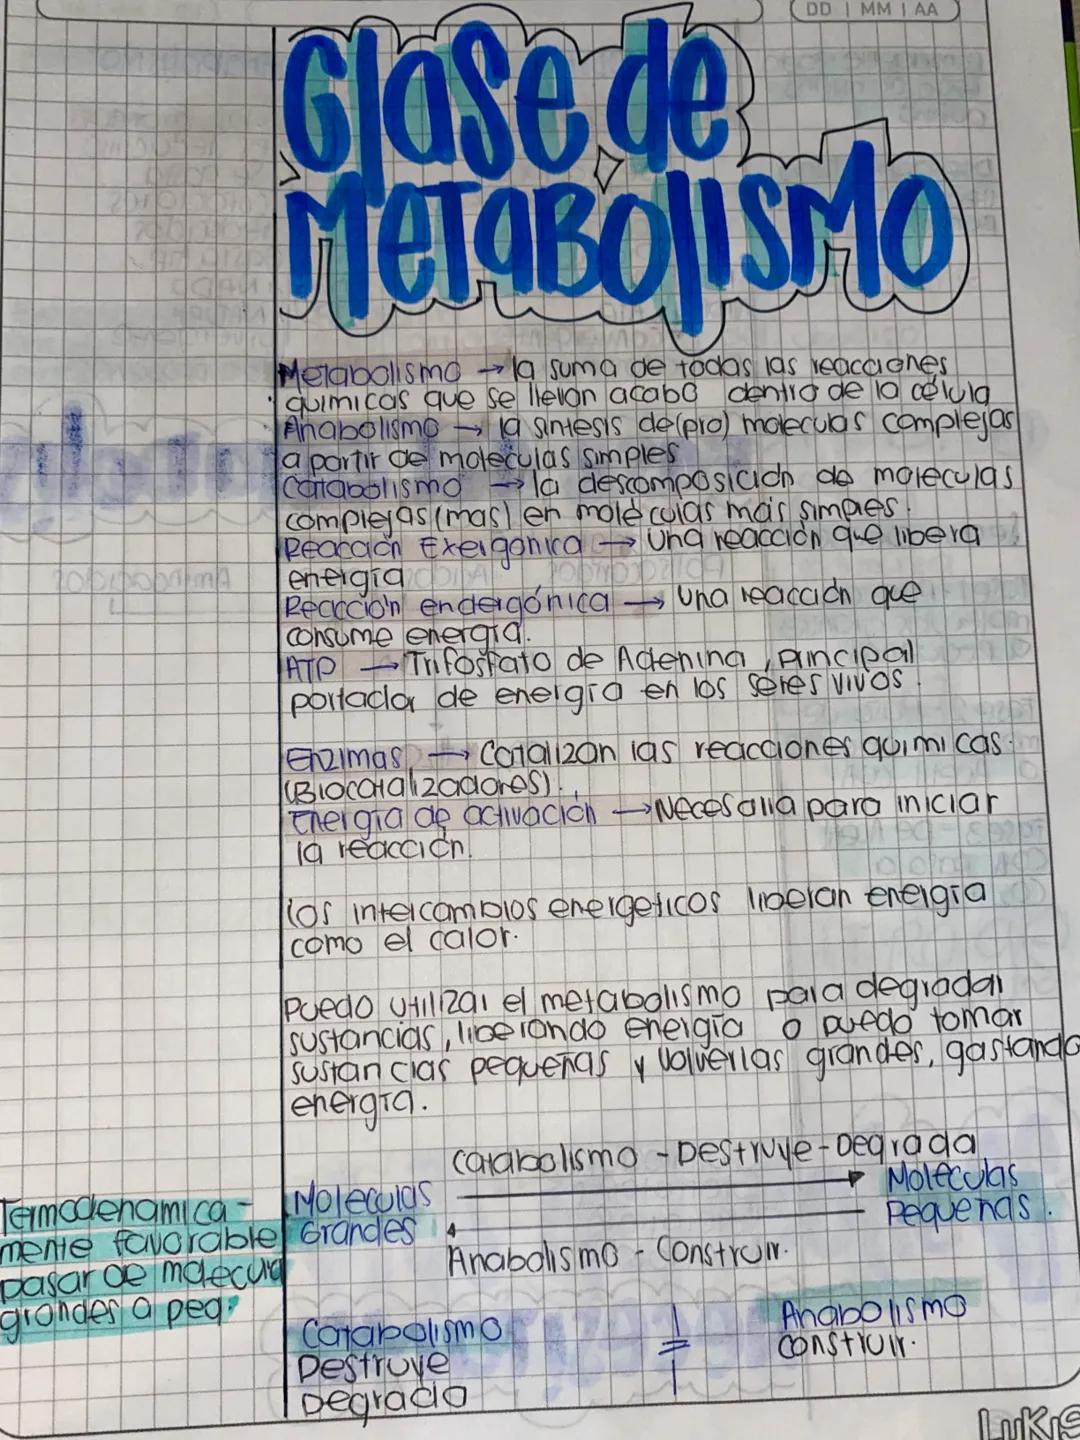 DD | MM | AA
Clase de
METABOlISMO
Metabolismo → la suma de todas las reacciones
quimicas que se llevan acabo dentro de la célula
Anabolismo → la sintesis de(pro) moleculas complejas
a partir de moleculas simples
Catabolismo → la descomposición de moleculas
complejas (mas) en moléculas más simples.
Reacción Exergonica → Una reacción que libera
energía
Reacción endergónica → Una reacción que
consume energía.
ATP → Trifosfato de Adenina, principal
portador de energía en los seres vivos.
Enzimas → Catalizan las reacciones quimicas.
(Biocatalizadores).
Energía de activación → Necesaria para iniciar
la reacción.
los intercambios energeticos liberan energía
como el calor.
Puedo utilizar el metabolismo para degradar
sustancias, liberando energía o puedo tomar
sustancias pequeñas y volverlas grandes, gastando
energía.
Catabolismo - Destruye - Degrada
Moleculas
Grandes
Moleculas
Pequeñas.
Anabolismo - Construir.
Termodenamica-
mente favorable
pasar de molecula
grandes a peq.
Catabolismo
Destruye
Degrada
Anabolismo
construir.
LUKIS